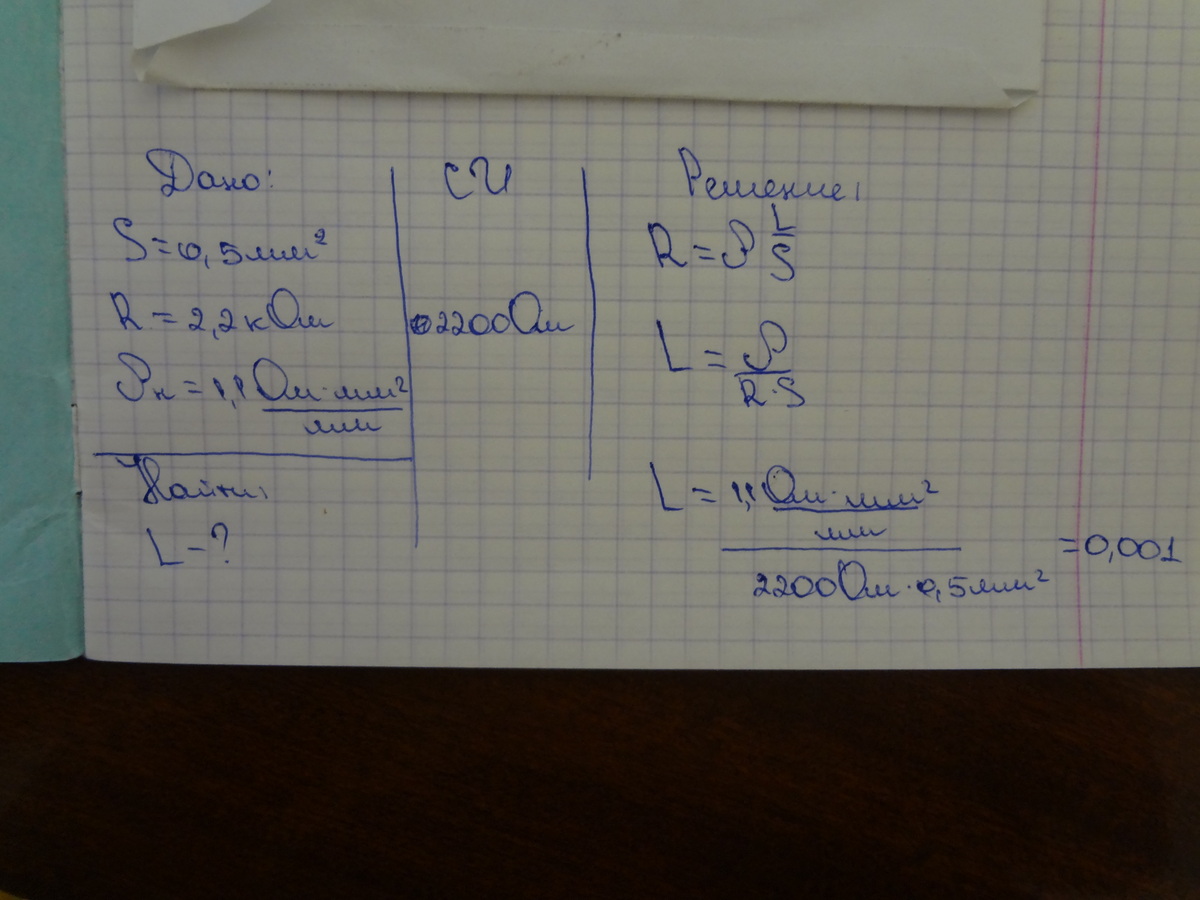 Дано:
S = 0,5 мм²
R = 2,2 кОм
ρн = 1,1 Ом·мм²
мм
Найти:
L - ?
СИ
2200 Ом
Решение:
R = ρ L/S
L = ρ
R·S
L = 1,1 Ом·мм²
мм
2200 Ом·0,5 мм²
= 0,001